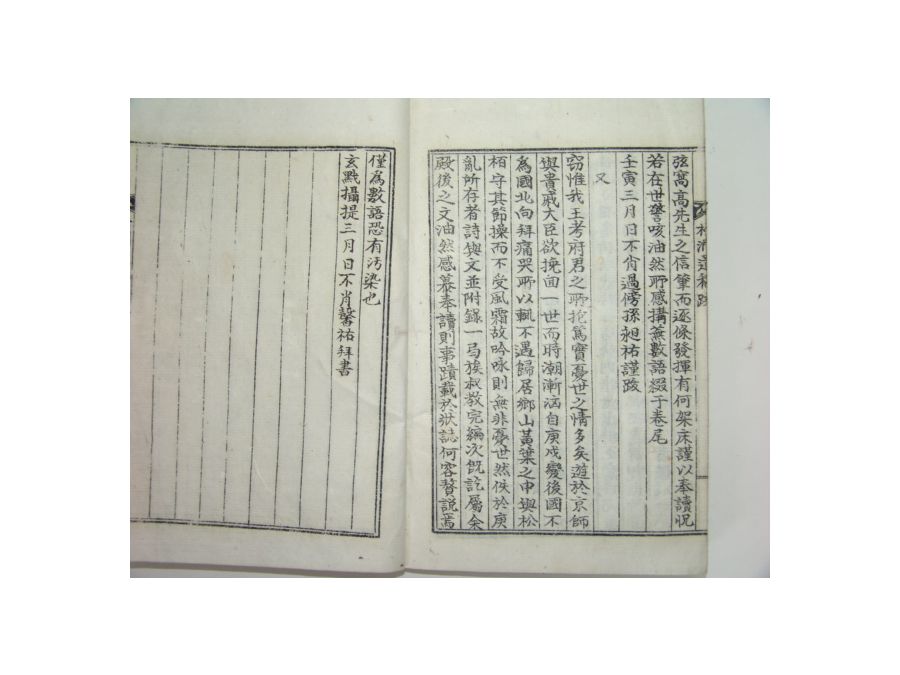 弦窩高先生之信筆而逐條發揮有何架床謹以奉讀怳
若在世謦咳油然所感搆蕪數語綴于卷尾
壬寅三月日不肖過傍孫昶祐謹跋
又
窃惟我王考府君之所抱篤實憂世之情多矣遊於京師
與貴戚大臣欲挽回一世而時潮漸洶自庚戌變後國不
為國北向拜痛哭所以輒不遇歸居鄉山黃葉之中與松
栢守其節操而不受風霜故吟咏則無非憂世然佚於庚
亂所存者詩與文並附錄一弓族叔教完編次旣訖屬余
殿後之文油然感慕奉讀則事蹟載於狀誌何容贅說焉
僅為數語恐有汚染也
玄黓攝提三月日不肖馨祐拜書